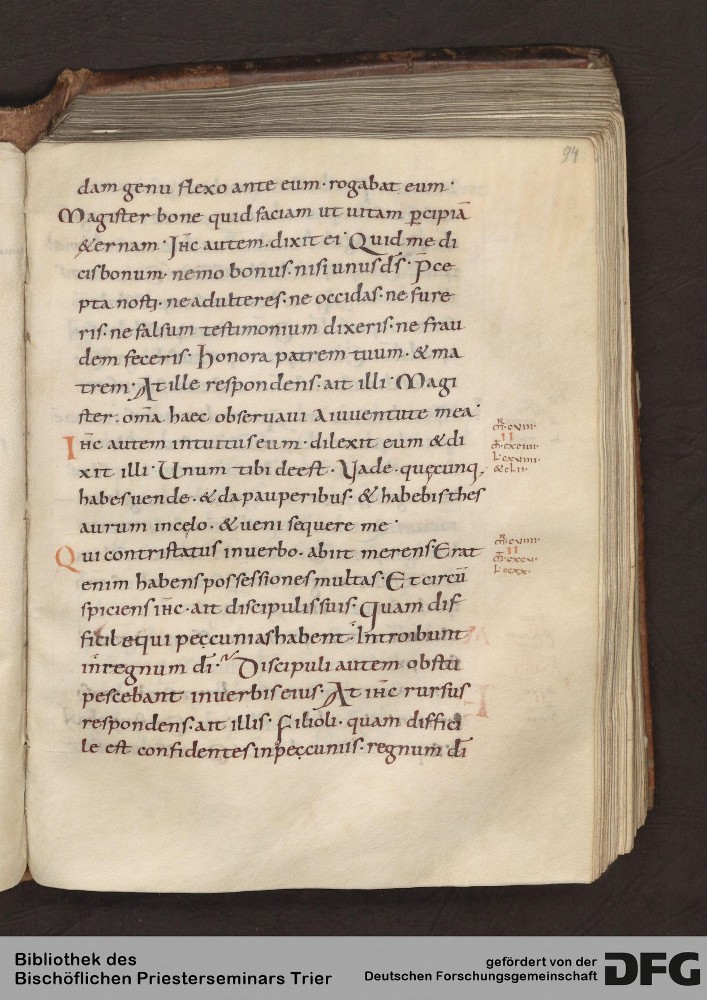 94
dam genu flexo ante eum· rogabat eum·
Magister bone quid faciam ut uitam ꝑcipiā
&ernam· Ihc̄ autem dixit ei· Quid me di
cis bonum· nemo bonus· nisi unus d̄s· P̄ce
pta nosti· ne adulteres· ne occidas· ne fure
ris· ne falsum testimonium dixeris· ne frau
dem feceris· Honora patrem tuum· & ma
trem· At ille respondens· ait illi· Magi
ster· om̄a haec obseruaui a iuuentute mea·
Ihc̄ autem intuitus eum· dilexit eum & di
xit illi· Unum tibi deest· Vade· quęcunq,
habes uende· & da pauperibus· & habebis thes
aurum in cęlo· & ueni sequere me·
Qui contristatus in uerbo· abiit merens· Erat
enim habens possessiones multas· Et circū
spiciens ihc̄· ait discipulis suis· Quam dif
ficile qui peccunias habent· Introibunt
in regnum dī· Discipuli autem obstu
pescebant in uerbis eius· At ihc̄ rursus
respondens· ait illis· Filioli· quam diffici
le est confidentes in peccuniis· regnum dī
Bibliothek des
Bischöflichen Priesterseminars Trier
gefördert von der
Deutschen Forschungsgemeinschaft
DFG